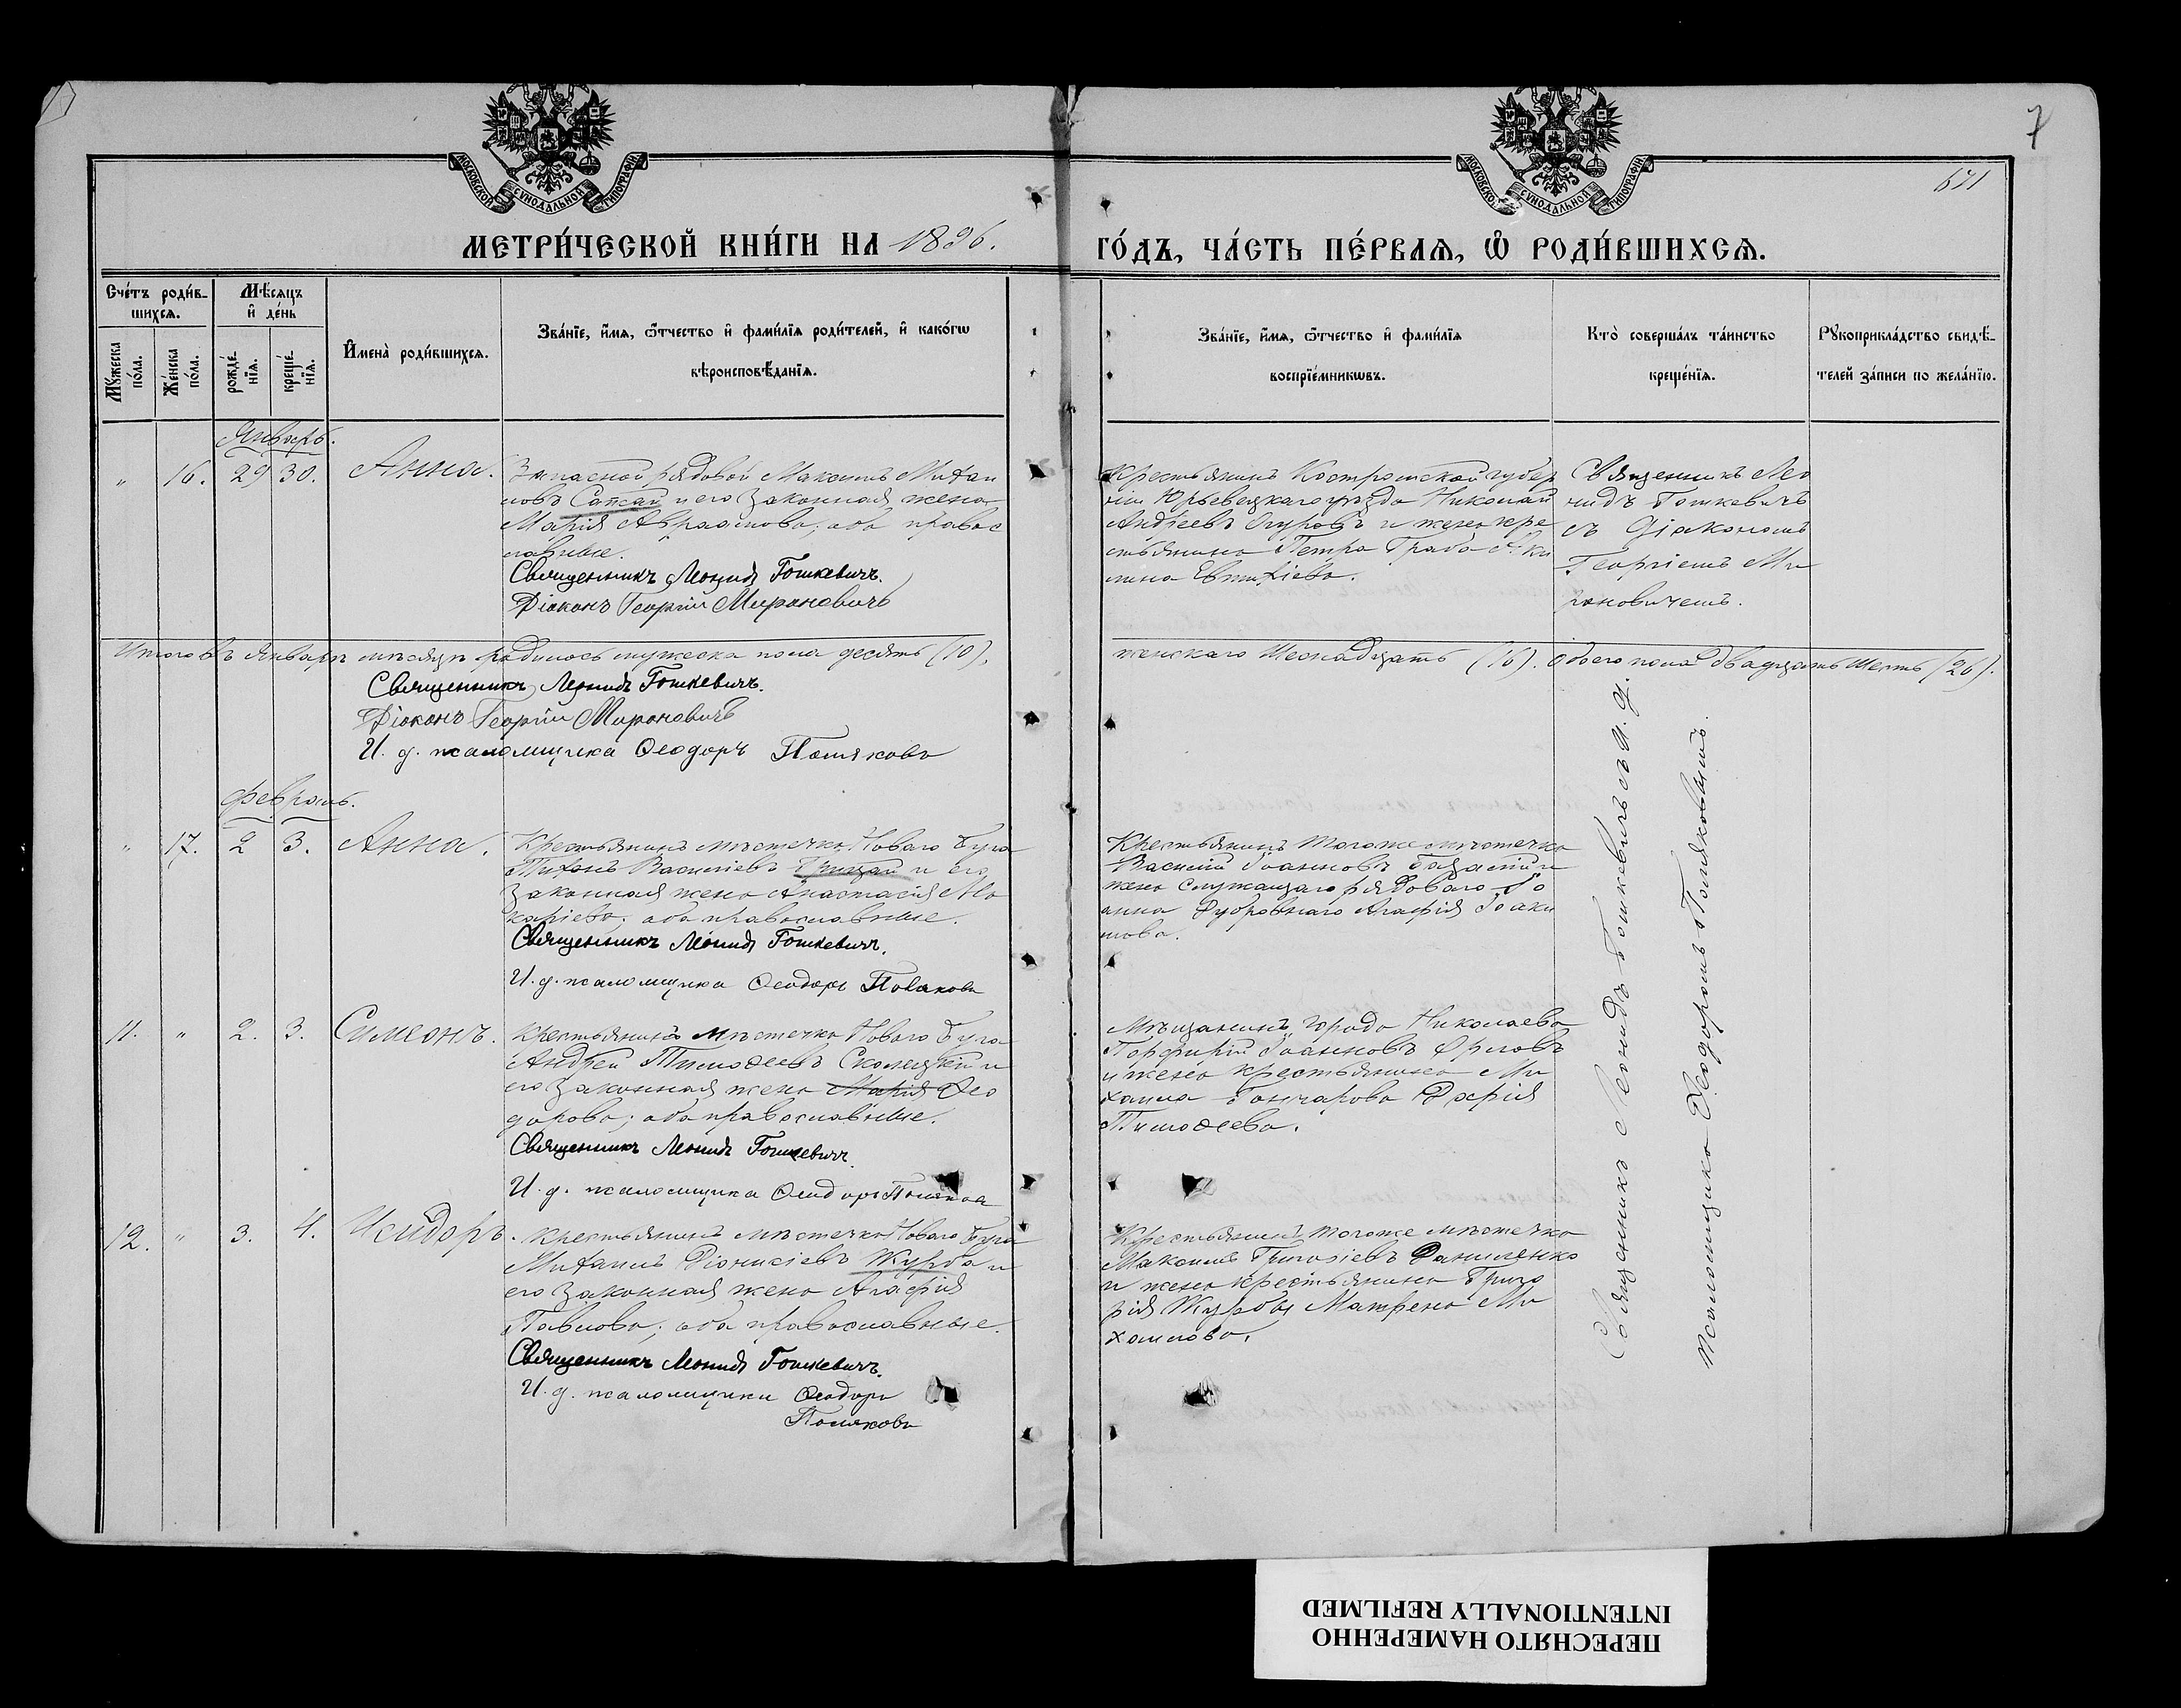 7
671
МОСКОВСКОЙ СѴНОДАЛЬНОЙ ТИПОГРАФІИ
МОСКОВСКОЙ СѴНОДАЛЬНОЙ ТИПОГРАФІИ
МЕТРИ́ЧЕСКОЙ КНИ́ГИ НА 1896.
ГО́ДЪ, ЧА́СТЬ ПЕ́РВАѦ, Ѿ РОДИ́ВШИХСѦ.
Сче́тъ роди́в-
шихсѧ.
Мѣ́сѧцъ
и҆ де́нь
Мꙋ́жеска
по́ла.
Же́нска
по́ла.
рожде́-
нїѧ.
креще́-
нїѧ.
И҆мена̀ роди́вшихсѧ.
Зва́нїе, и҆́мѧ, ѻ҆́тчество и҆ фами́лїѧ роди́телей, и҆ како́гѡ
вѣроисповѣ́данїѧ.
Зва́нїе, и҆́мѧ, ѻ҆́тчество и҆ фами́лїѧ
воспрїе́мникѡвъ.
Кто̀ соверша́лъ та́инство
креще́нїѧ.
Рꙋкоприкла́дство свидѣ́-
телей за́писи по жела́нїю.
Январь.
" 16. 29 30. Анна.
Запасной рядовой Максимъ Михаи
ловъ Сапсай и его законная жена
Марія Авраамова; оба правос
лавные.
Священникъ Леонидъ Гошкевичъ.
Діаконъ Георгій Мироновичъ
Крестьянинъ Костромской губер
ніи Юрьевецкаго уѣзда Николай
Андреевъ Огуровъ и жена кре
стьянина Петра Граба Аки
лина Евтихіева.
Священникъ Лео
нидъ Гошкевичъ
съ Діакономъ
Георгіемъ Ми
роновичемъ.
Итого въ Январѣ мѣсяцѣ родилось мужеска пола десять (10),
женскаго шеснадцать (16). Обоего пола двадцать шесть (26).
Священникъ Леонидъ Гошкевичъ.
Діаконъ Георгій Мироновичъ
И. д. псаломщика Ѳеодоръ Поляковъ
Февраль.
" 17. 2 3. Анна.
Крестьянинъ мѣстечка Новаго Буга
Тихонъ Василіевъ Грицай и его
законная жена Анастасія Ма
каріева; оба православные.
Священникъ Леонидъ Гошкевичъ.
И. д. псаломщика Ѳеодоръ Поляковъ
Крестьянинъ тогоже мѣстечка
Василій Іоанновъ и
жена служащаго рядоваго Іо
анна Дубровнаго Агафія Іоаки
мова.
11. " 2. 3. Симеонъ.
Крестьянинъ мѣстечка Новаго Буга
Андрей Тимоѳеевъ Сколецкій и
его законная жена Марія Ѳео
дорова; оба православные.
Священникъ Леонидъ Гошкевичъ.
И. д. псаломщика Ѳеодоръ Поляковъ
Мѣщанинъ города Николаева
Порфирій Іоанновъ Орловъ
и жена крестьянина Ми
хаила Гончарова Дарія
Тимоѳеева.
12. " 3. 4. Исидоръ.
Крестьянинъ мѣстечка Новаго Буга
Михаилъ Діонисіевъ Журба и
его законная жена Агафія
Павлова; оба православные.
Священникъ Леонидъ Гошкевичъ.
И. д. псаломщика Ѳеодоръ
Поляковъ
Крестьянинъ тогоже мѣстечка
Максимъ Григоріевъ Даниленко
и жена крестьянина Григо
рія Журбы Матрена Ми
хаилова.
Священникъ Леонидъ Гошкевичъ съ И. д.
Псаломщика Ѳеодоромъ Поляковымъ.
ПЕРЕСНЯТО НАМЕРЕННО
INTENTIONALLY REFILMED